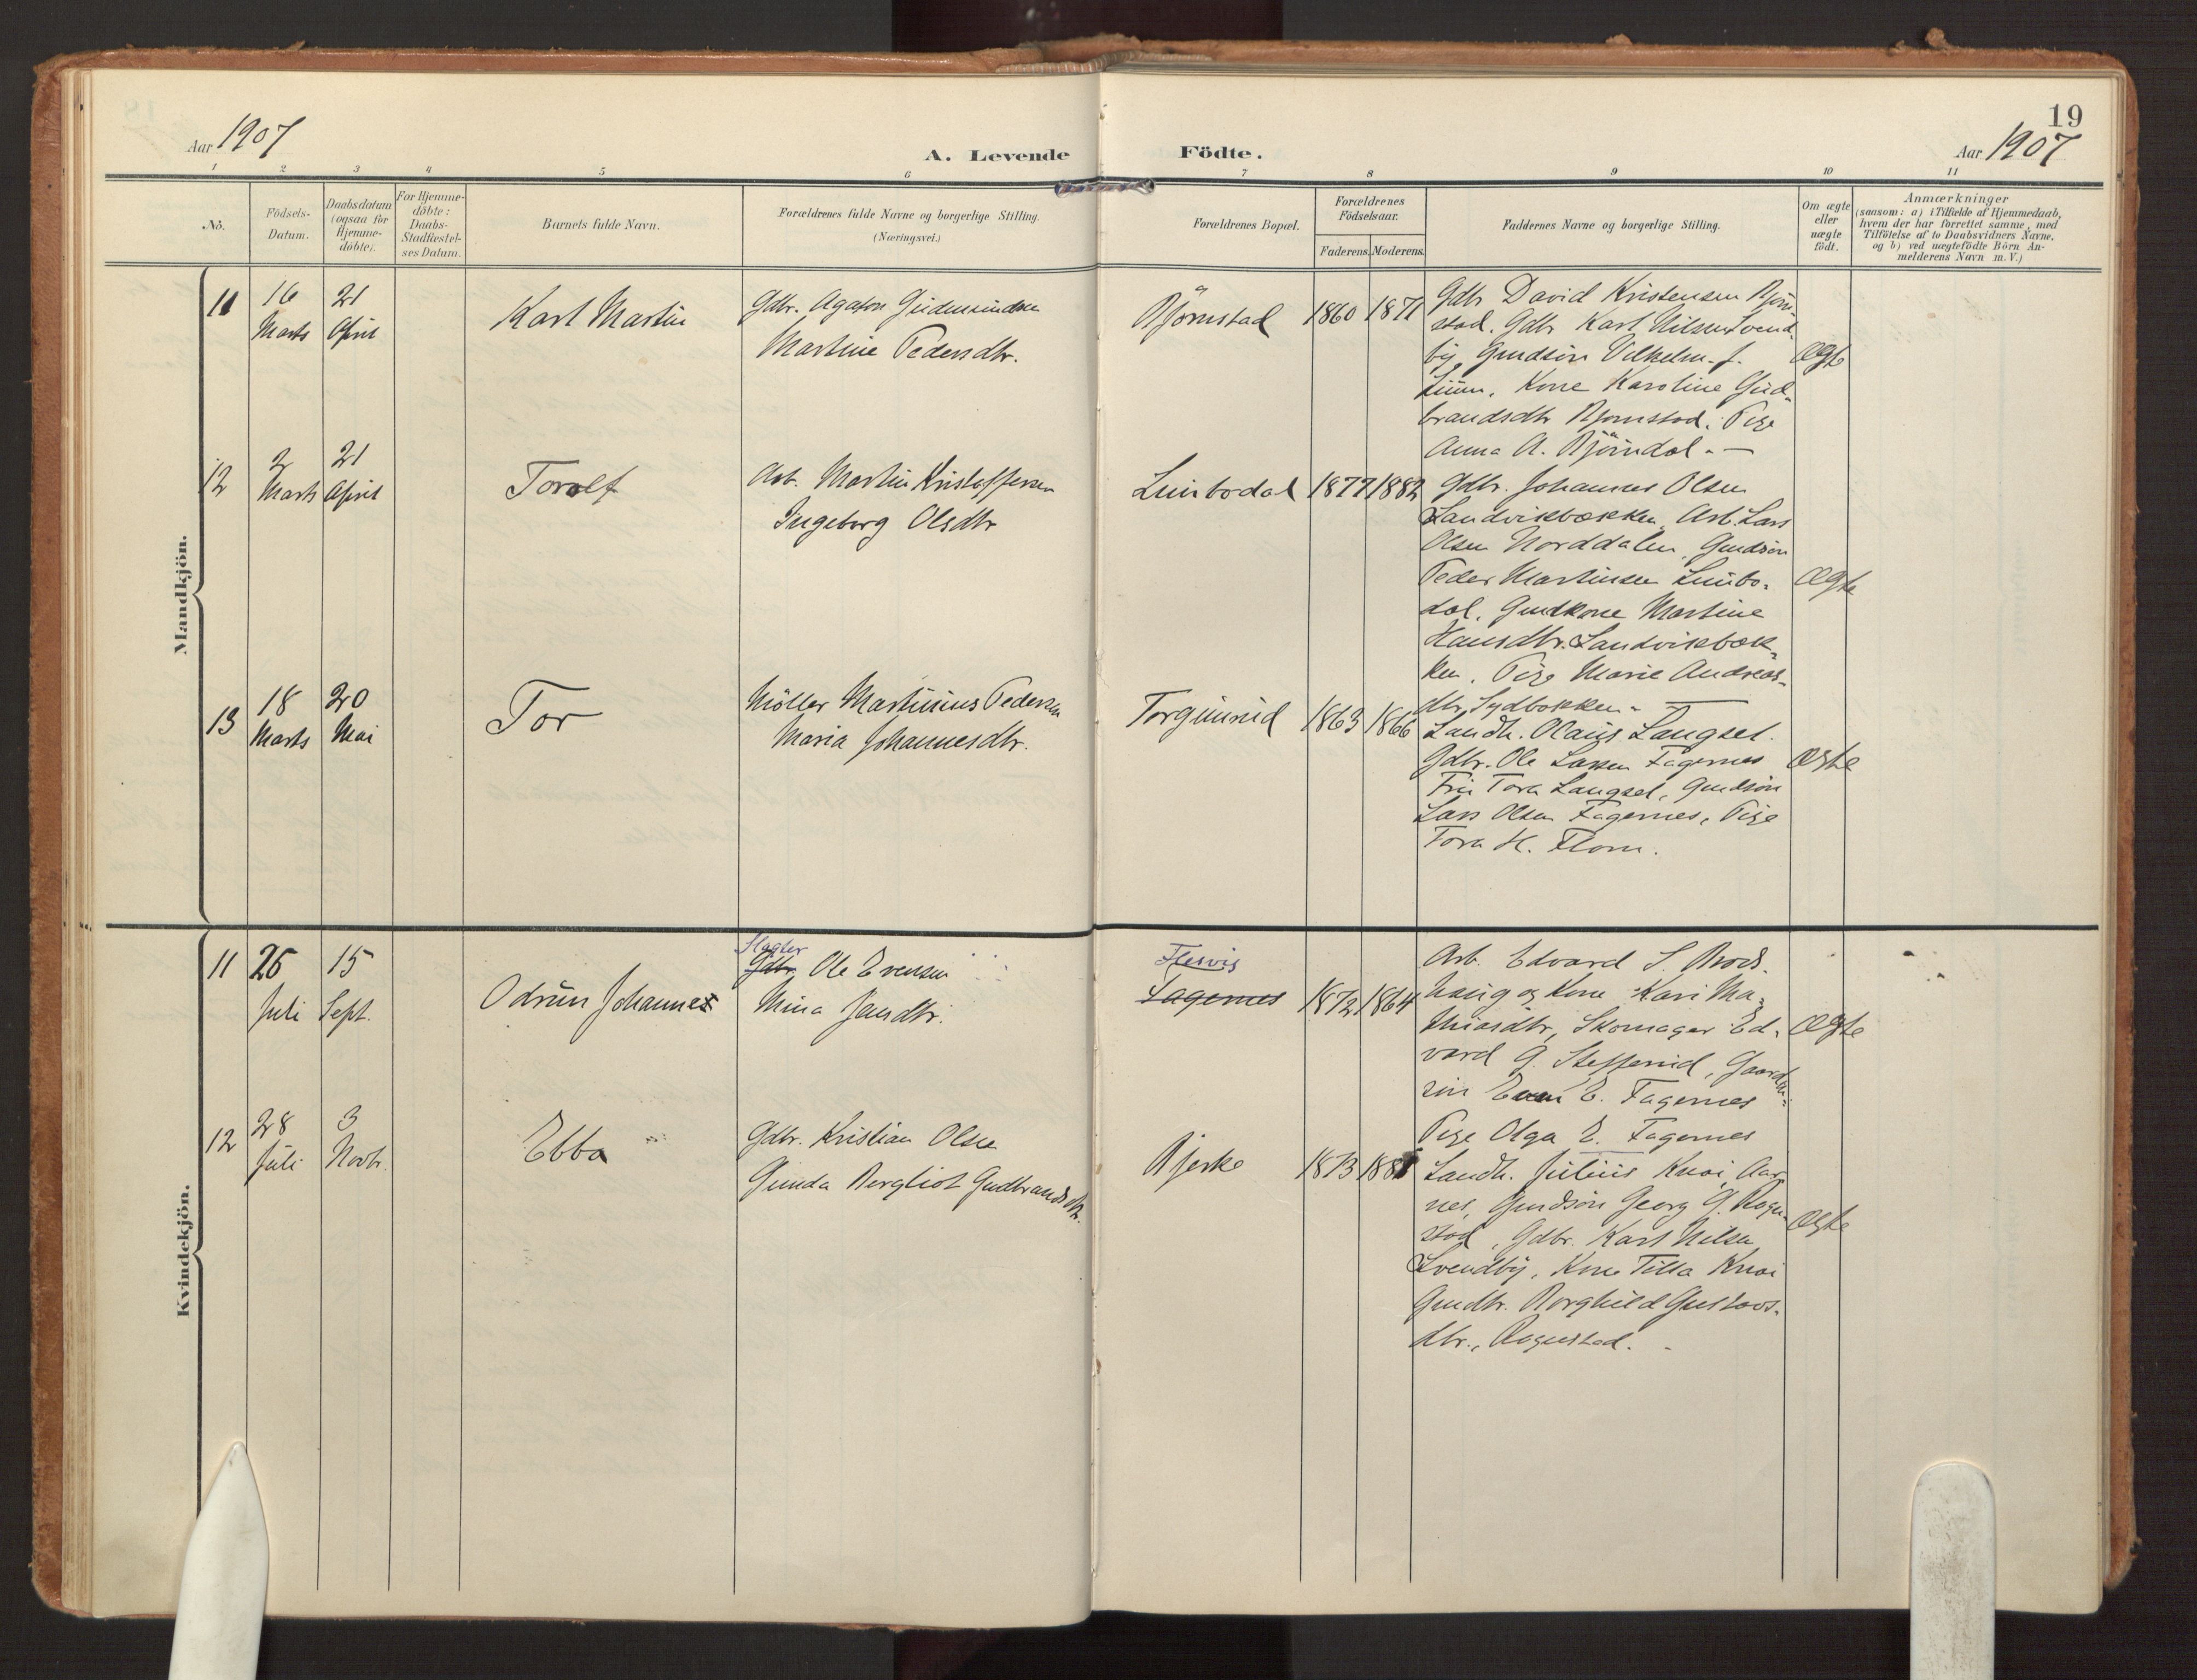 19
Aar 1907
A. Levende Födte.
Aar 1907
1 2 3 4 5 6 7 8 9 10 11
No.
Födsels-
Datum.
Daabsdatum
(ogsaa for
Hjemme-
döbte).
For Hjemme-
döbte:
Daabs-
Stadfæstel-
ses Datum.
Barnets fulde Navn.
Forældrenes fulde Navne og borgerlige Stilling.
(Næringsvei.)
Forældrenes Bopæl.
Forældrenes
Födselsaar.
Faderens. Moderens.
Faddernes Navne og borgerlige Stilling.
Om ægte
eller
uægte
födt.
Anmærkninger
(saasom: a) i Tilfælde af Hjemmedaab,
hvem der har forrettet samme, med
Tilföielse af to Daabsvidners Navne,
og b) ved uægtefödte Börn An-
melderens Navn m. V.)
Mandkjön.
11
16
Marts
21
April
Karl Martin
Gdbr. Agaton Gudmundsen
Martine Pedersdtr.
Björnstad
1860 1871
Gdbr David Kristensen Björn
stad. Gdbr Karl Nilsen Svend
by, Gmdsön Vilhelm J.
Linn. Kone Karoline Gud-
brandsdtr Bjornstad. Pige
Anna A. Björndal. —
Ægte
12
2
Marts
21
April
Toralf
Arb. Martin Kristoffersen
Ingeborg Olsdtr
Limbodal
1877 1882
Gdbr. Johannes Olsen
Sandviksbækken, Arb. Lars
Olsen Norddalen, Gmdsön
Peder Martinsen Limbo-
dal, Gmdkone Martine
Hansdtr. Sandviksbæk-
ken. Pige Marie Andreas-
dtr Sydbækken. —
Ægte
13
18
Marts
20
Mai
Tor
Möller Martinius Pedersen
Maria Johannesdtr.
Torgunrud
1863 1866
Landh. Olaus Langset.
Gdbr. Ole Larsen Fagernes
Fru Tora Langset, Gmdsön
Lars Olsen Fagernes, Pige
Tora H. Flom.
Ægte
Kvindekjön.
11
26
Juli
15
Sept.
Odrun Johanne
Slagter
Gdbr. Ole Evensen
Mina Jansdtr.
Flesvig
Fagernes
1872 1864
Arb. Edvard S. Brods-
haug og Kone Kari Ma-
thiasdtr, Skomager Ed-
vard G. Steffenrud, Gaardm-
sön Even E. Fagernes
Pige Olga E. Fagernes
Ægte
12
28
Juli
3
Novbr.
Ebba
Gdbr. Kristian Olsen
Gunda Bergliot Gudbrandsdtr.
Bjerke
1873 1881
Landh. Julius Knai Aar-
nes, Gmdsön Georg G. Rogn-
stad, Gdbr. Karl Nilsen
Svendby, Kone Tilla Knai
Gmdtr. Borghild Gustavs-
dtr., Rognstad.
Ægte